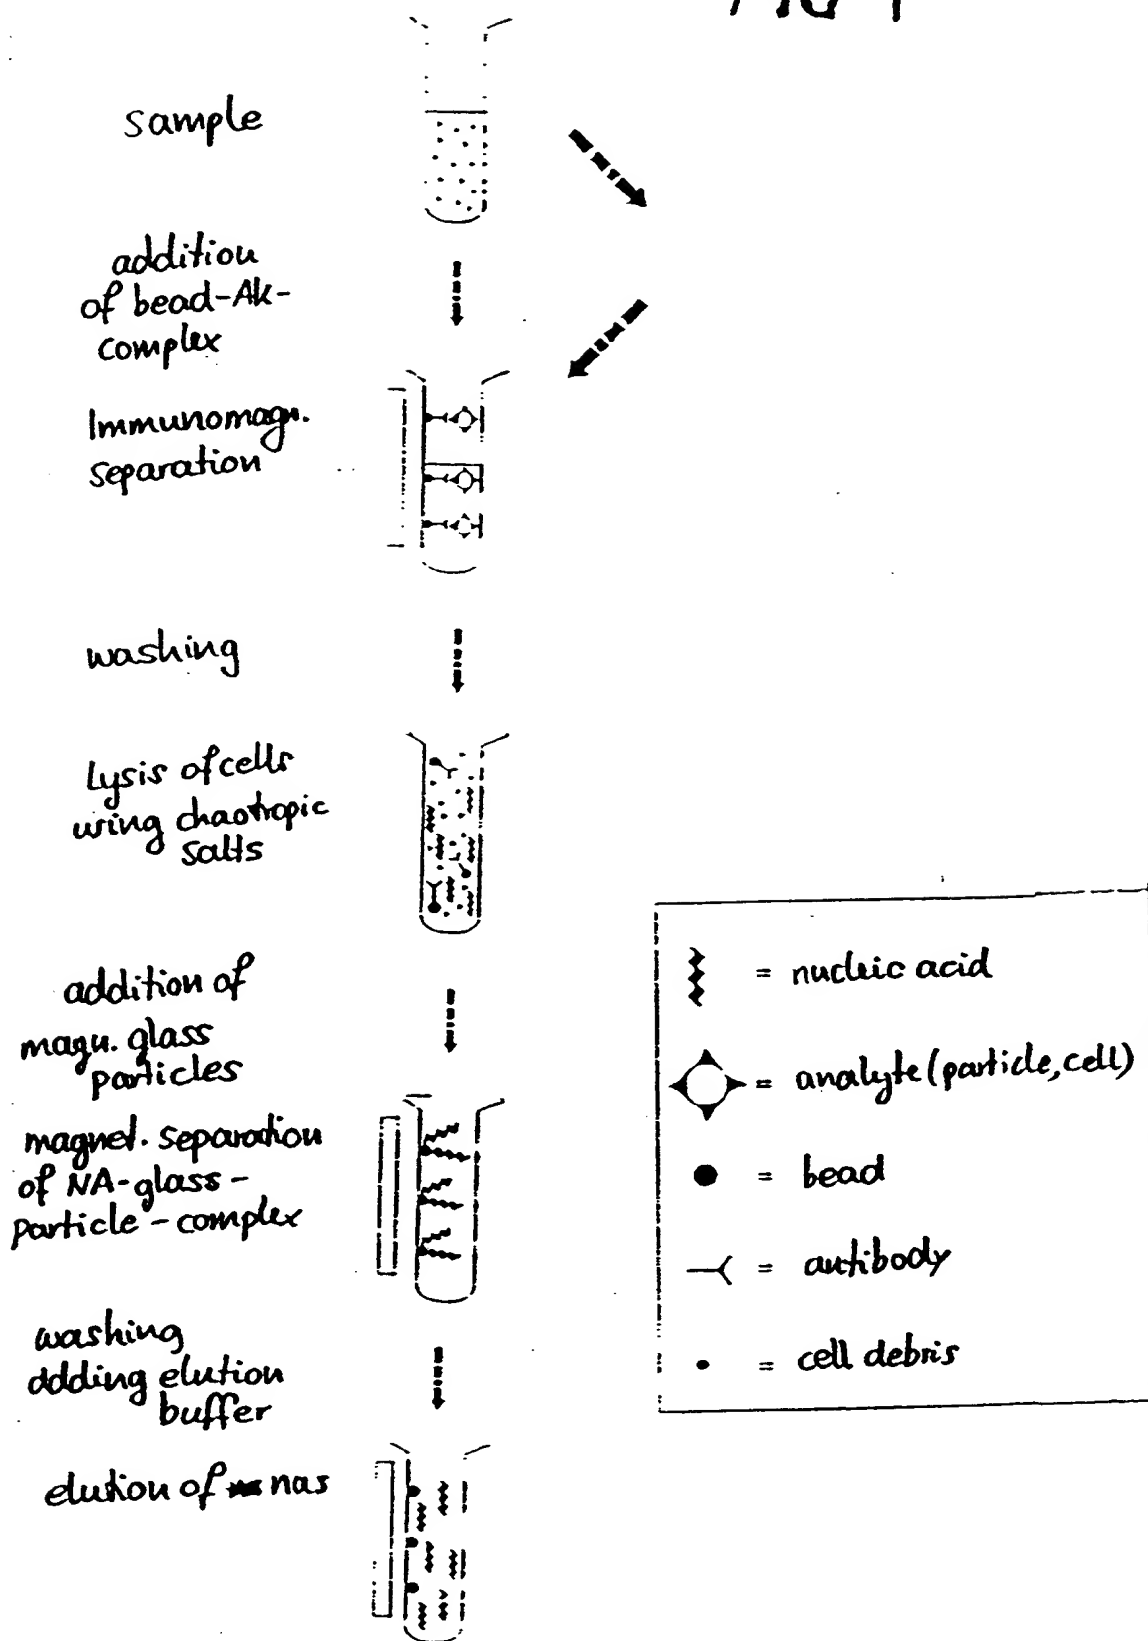 FIG 1
sample
addition
of bead-Ak-
complex
Immunomagn.
separation
washing
Lysis of cells
using chaotropic
salts
addition of
magn. glass
particles
magnet. separation
of NA-glass-
Particle-complex
washing
ddding elution
buffer
elution of nas
= nucleic acid
= analyte (particle, cell)
= bead
= antibody
= cell debris